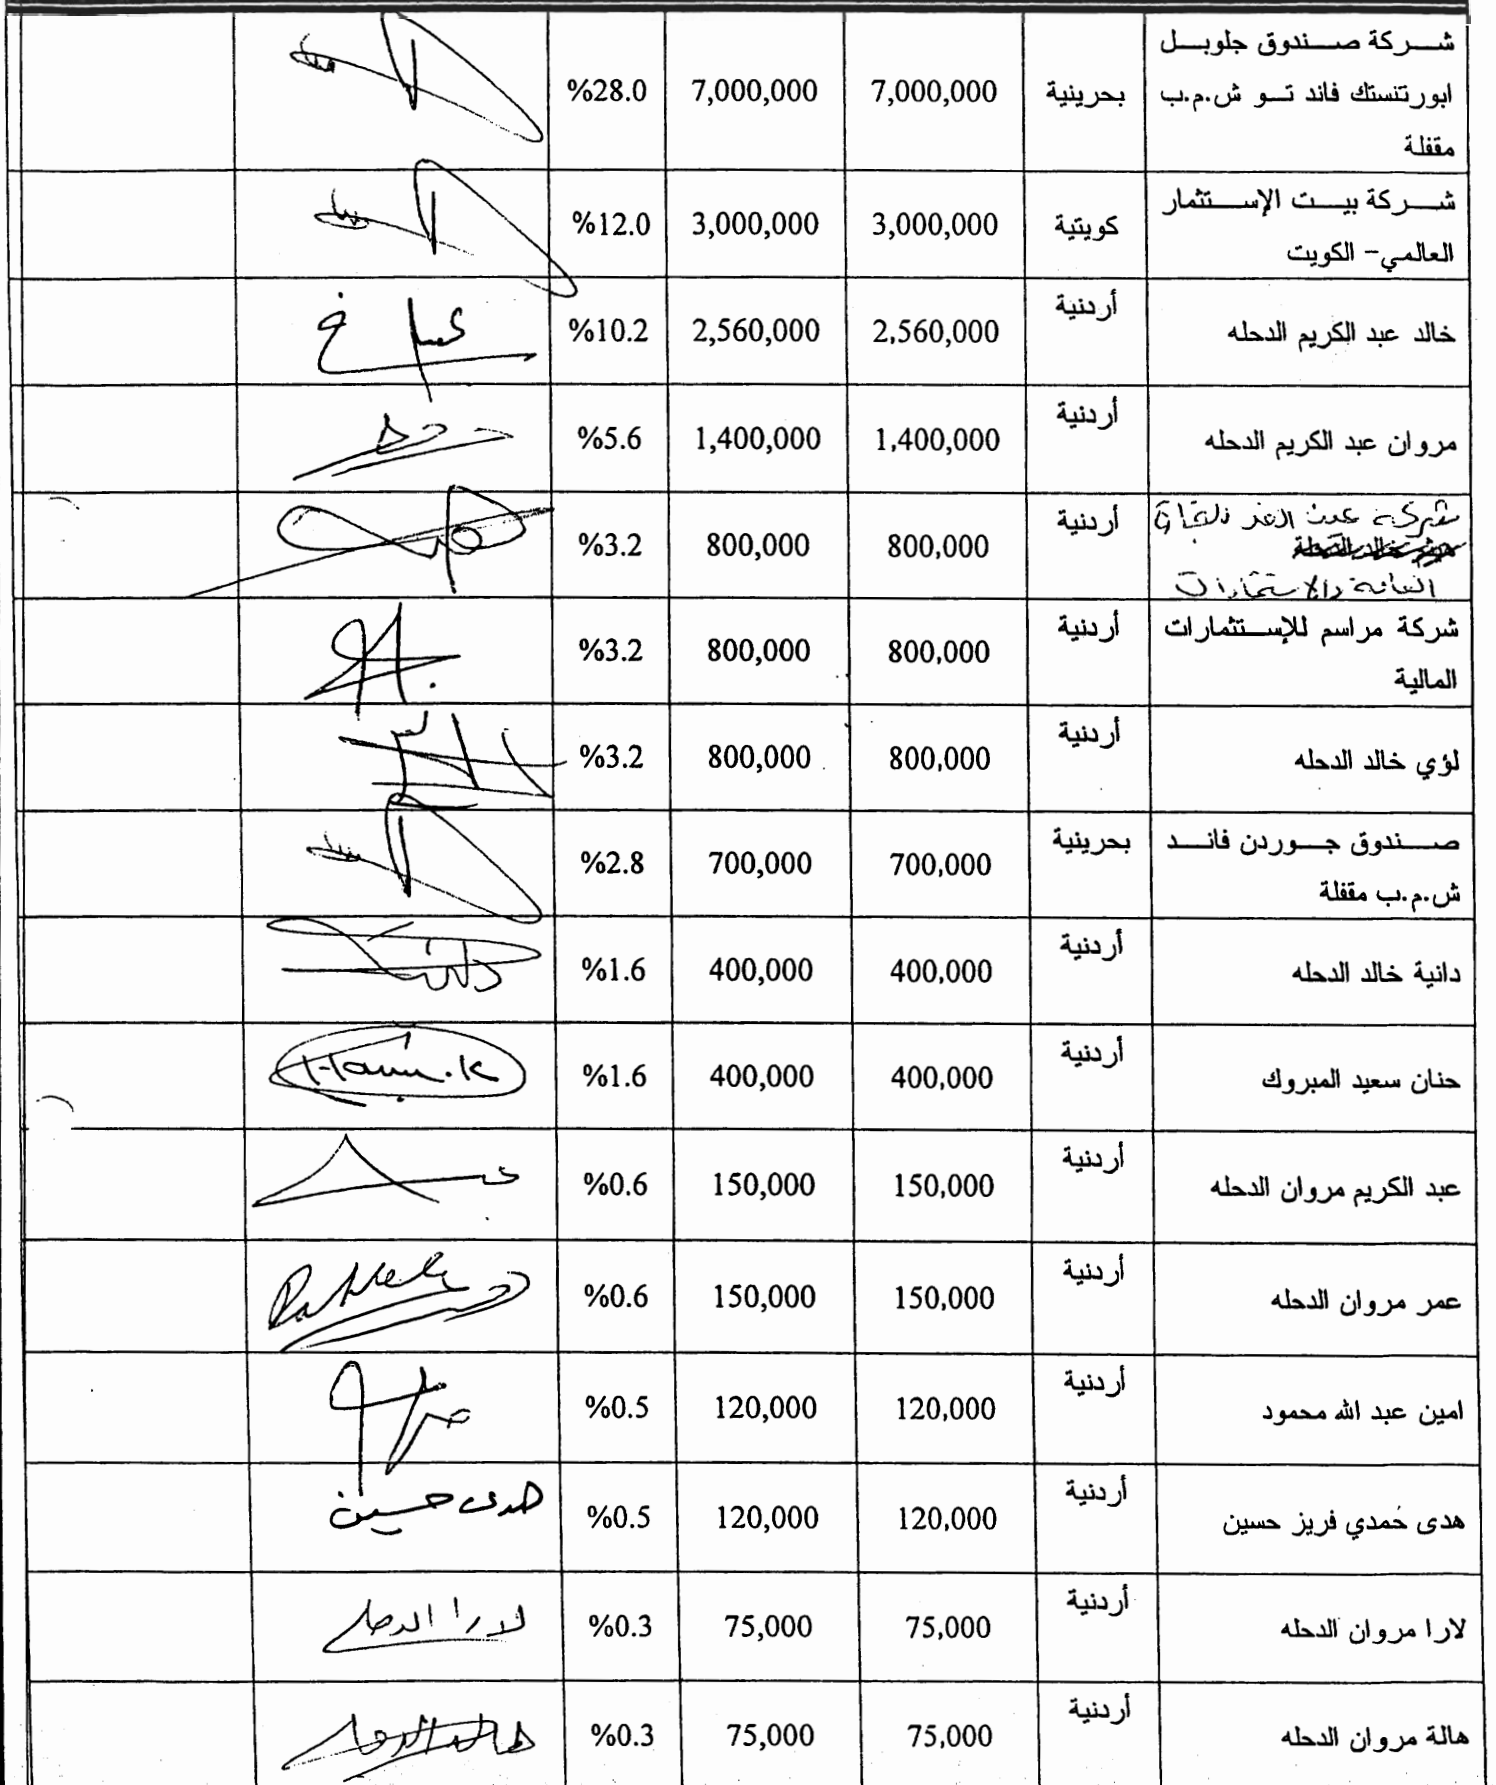 شركة صندوق جلوبل
ابورتنستك فاند تو ش.م.ب
مقفلة
بحرينية
7,000,000
7,000,000
%28.0
شركة بيت الإستثمار
العالمي- الكويت
كويتية
3,000,000
3,000,000
%12.0
خالد عبد الكريم الدحله
أردنية
2,560,000
2,560,000
%10.2
مروان عبد الكريم الدحله
أردنية
1,400,000
1,400,000
%5.6
شركة عين
أردنية
800,000
800,000
%3.2
شركة مراسم للإستثمارات
المالية
أردنية
800,000
800,000
%3.2
لؤي خالد الدحله
أردنية
800,000
800,000
%3.2
صندوق جوردن فاند
ش.م.ب مقفلة
بحرينية
700,000
700,000
%2.8
دانية خالد الدحله
أردنية
400,000
400,000
%1.6
حنان سعيد المبروك
أردنية
400,000
400,000
%1.6
عبد الكريم مروان الدحله
أردنية
150,000
150,000
%0.6
عمر مروان الدحله
أردنية
150,000
150,000
%0.6
امين عبد الله محمود
أردنية
120,000
120,000
%0.5
هدى حمدي فريز حسين
أردنية
120,000
120,000
%0.5
هدى حسين
لارا مروان الدحله
أردنية
75,000
75,000
%0.3
لارا الدحله
هالة مروان الدحله
أردنية
75,000
75,000
%0.3